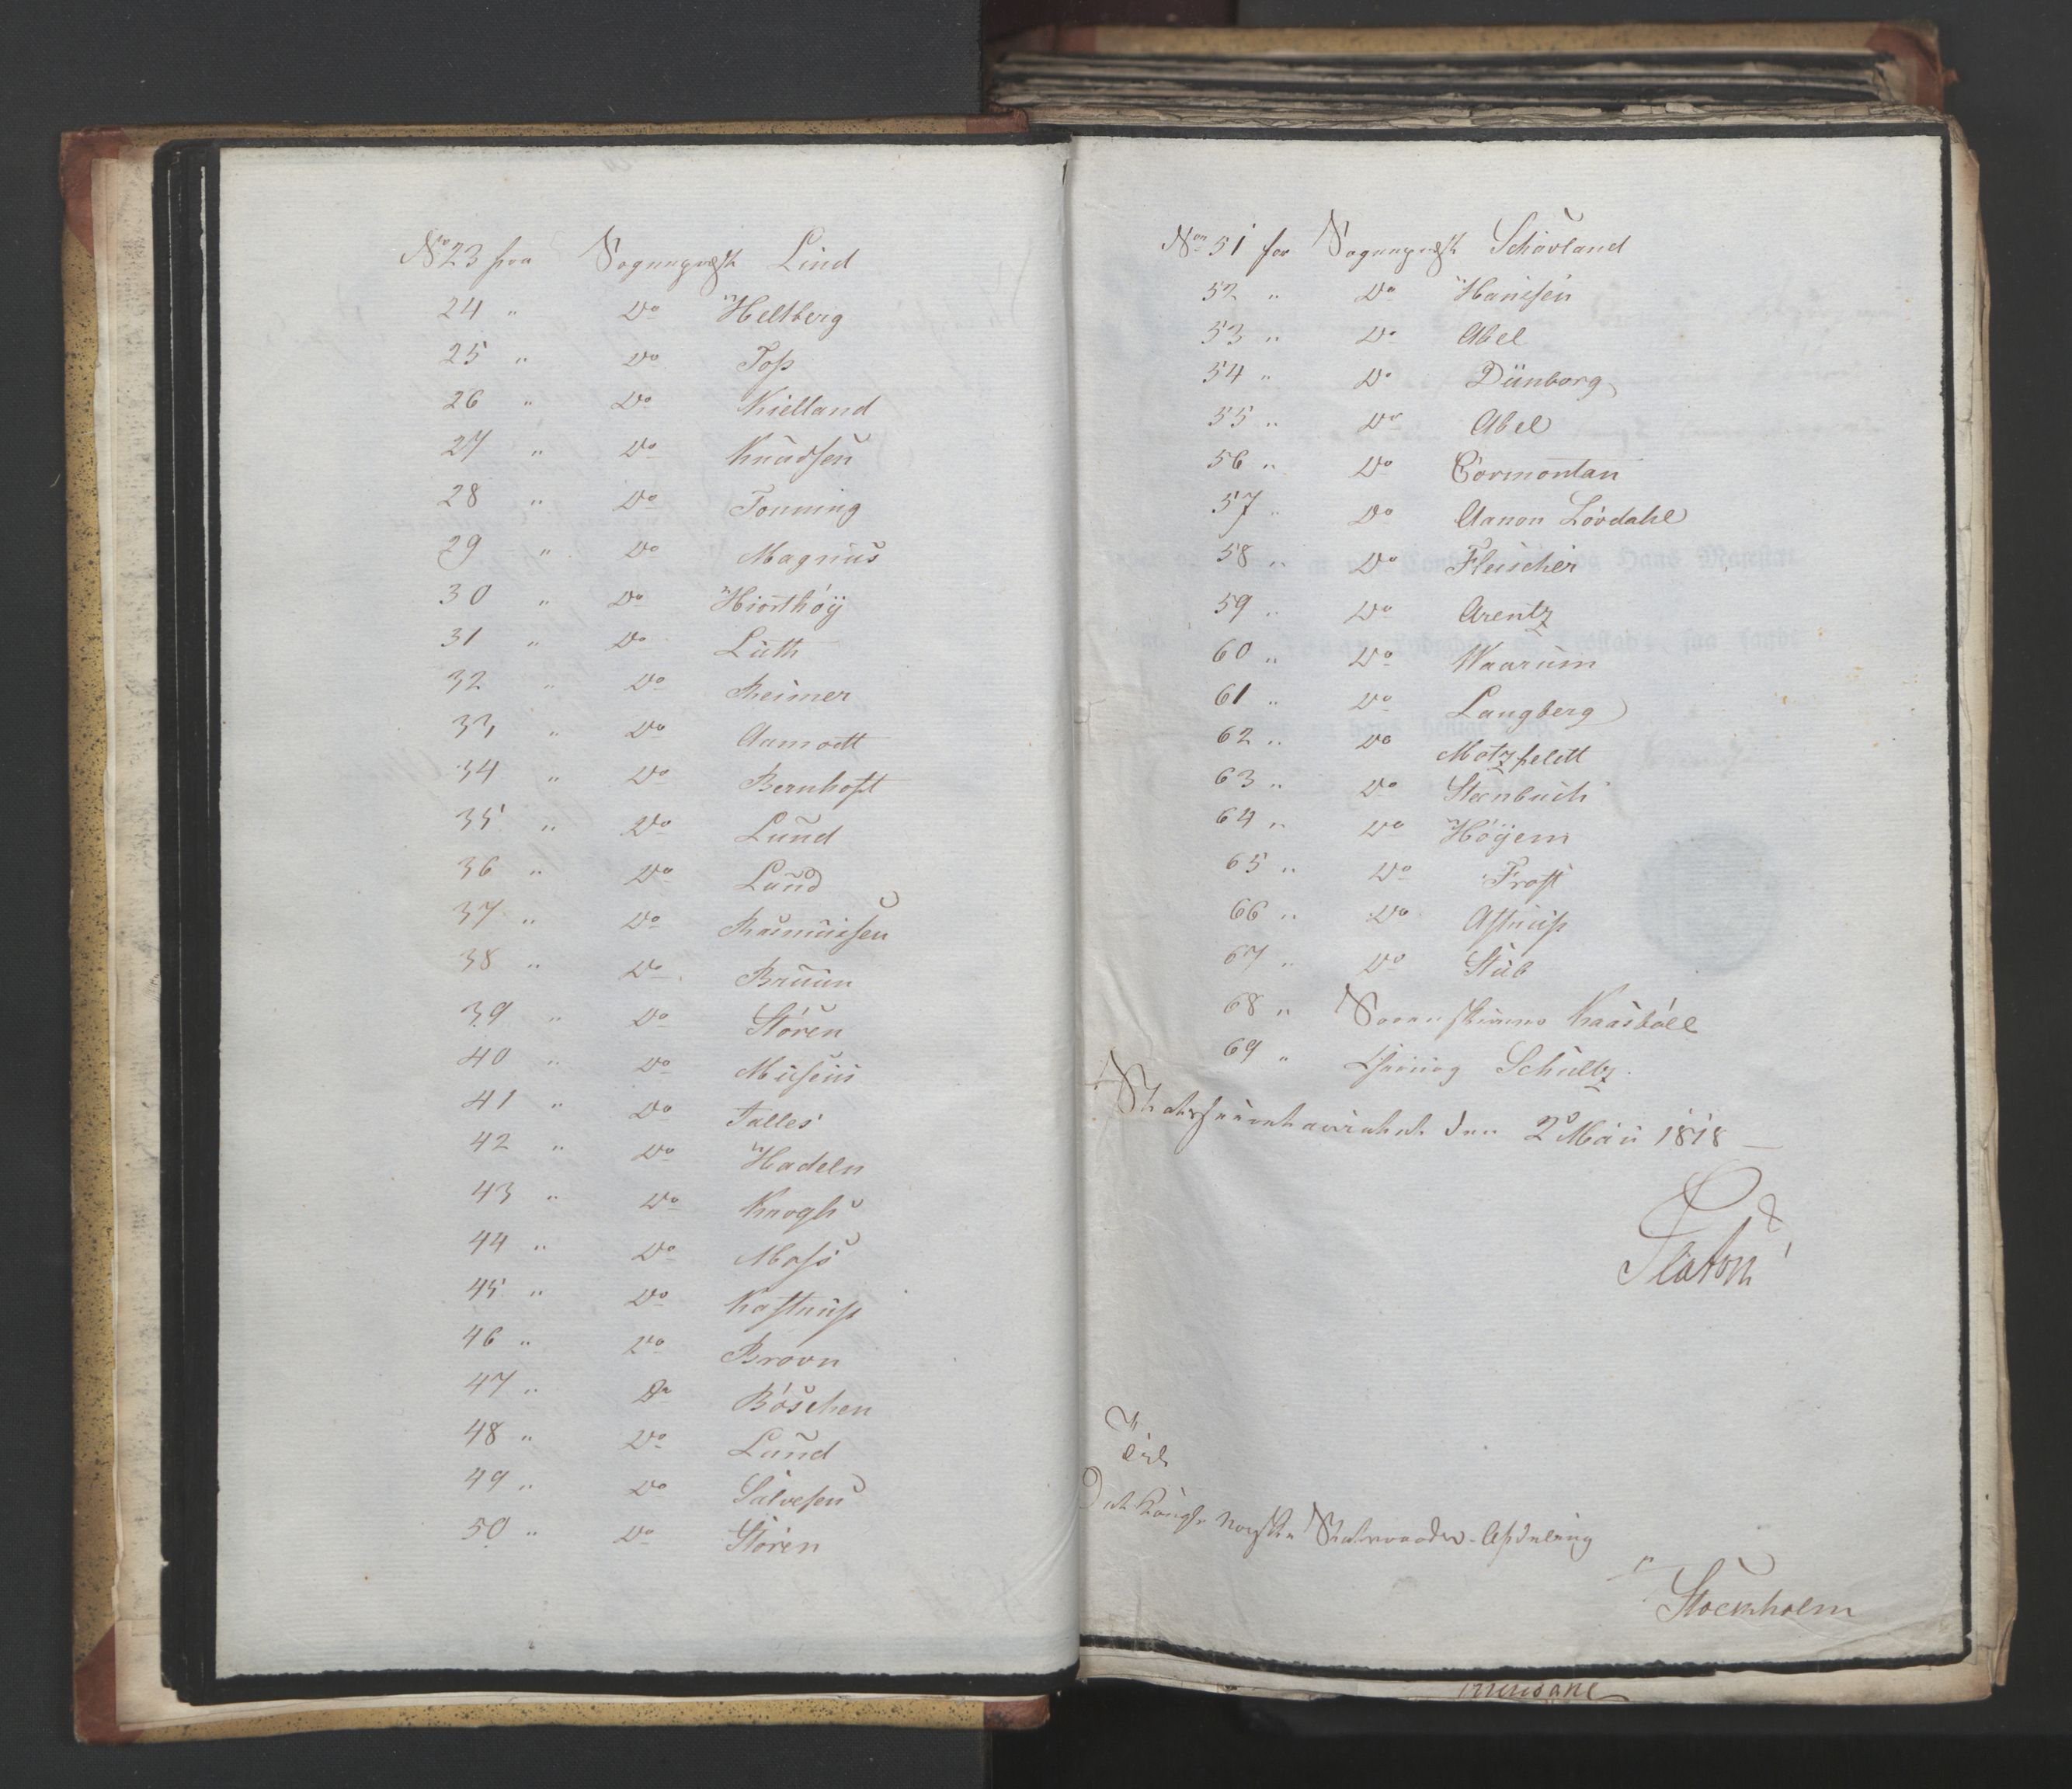 No 23 fra Sognepræst Lind
24 " Do Heltberg
25 " Do Foss
26 " Do Kielland
27 " Do Knudsen
28 " Do Tonning
29 " Do Magnus
30 " Do Hiorthøÿ
31 " Do Luth
32 " Do Reimer
33 " Do Aamodt
34 " Do Bernhoft
35 " Do Lund
36 " Do Lund
37 " Do Rasmussen
38 " Do Bruun
39 " Do Støren
40 " Do Museus
41 " Do Falles
42 " Do Hadeln
43 " Do Krogh
44 " Do Moss
45 " Do Kastrup
46 " Do Brovn
47 " Do Bøschen
48 " Do Lund
49 " Do Salvesen
50 " Do Støren
No 51 fra Sognepræst Schavland
52 " Do Hanssen
53 " Do Abel
54 " Do Dünborg
55 " Do Abel
56 " Do Cormontan
57 " Do Aanon Løvdahl
58 " Do Fleischer
59 " Do Arentz
60 " Do Waarum
61 " Do Langberg
62 " Do Motzfeldt
63 " Do Steenbuch
64 " Do Høÿem
65 " Do Frost
66 " Do Astrup
67 " Do Stub
68 " Sorenskriver Kaasbøll
69 " Schultz.
Statssecretariatet den 2 Maii 1818
Platou
Til
Det Kongl. Norske Statsraads-Afdeling
i
Stockholm